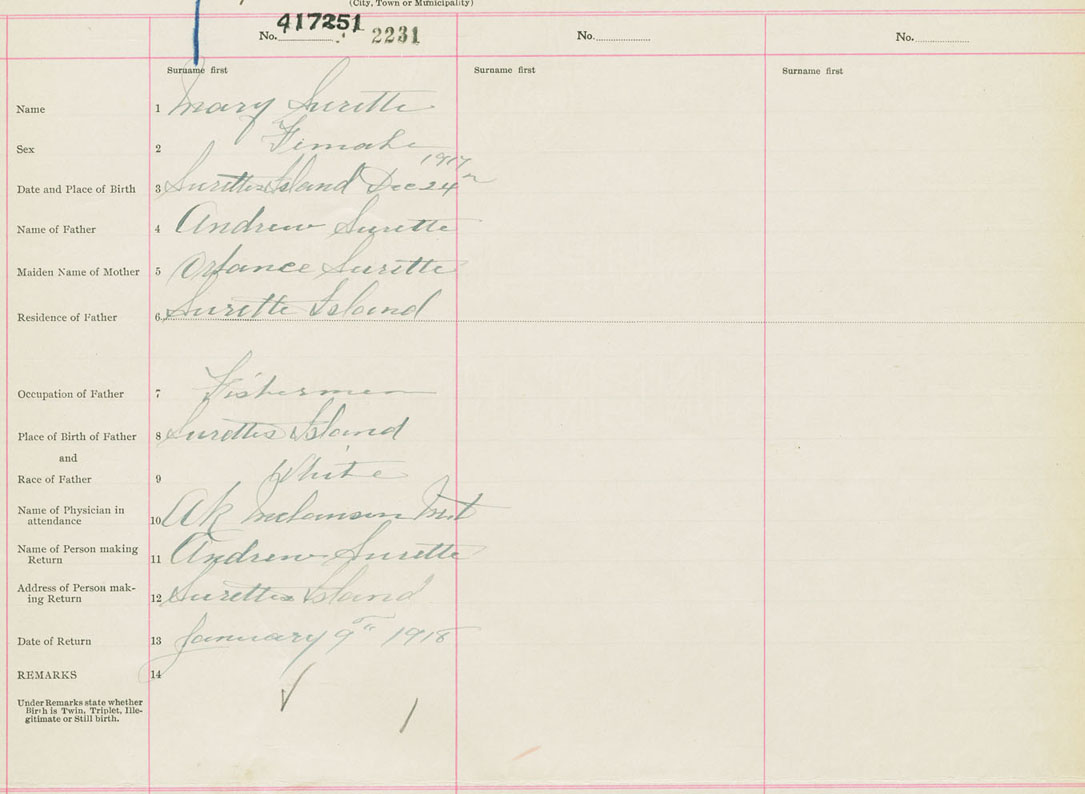 (City, Town or Municipality)
No. 417251 2231
No.
No.
Surname first
Surname first
Surname first
Name 1 Mary Surette
Sex 2 Female
1917
Date and Place of Birth 3 Surettes Island Dec 24th
Name of Father 4 Andrew Surette
Maiden Name of Mother 5 Orfance Surette
Residence of Father 6 Surette Island
Occupation of Father 7 Fishermen
Place of Birth of Father 8 Surettes Island
and
Race of Father 9 White
Name of Physician in
attendance 10 AR Melanson
Name of Person making
Return 11 Andrew Surette
Address of Person mak-
ing Return 12 Surettes Island
Date of Return 13 January 9th 1918
REMARKS 14
Under Remarks state whether
Birth is Twin, Triplet, Ille-
gitimate or Still birth.